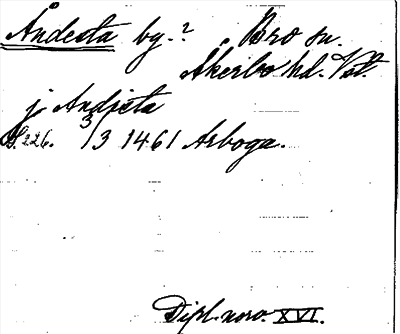 Åndesta by.? Bro sn.
Åkerbo hd. Vstl.
j Andista
S. 226. 3/3 1461 Arboga.
Dipl. novo. XVI.